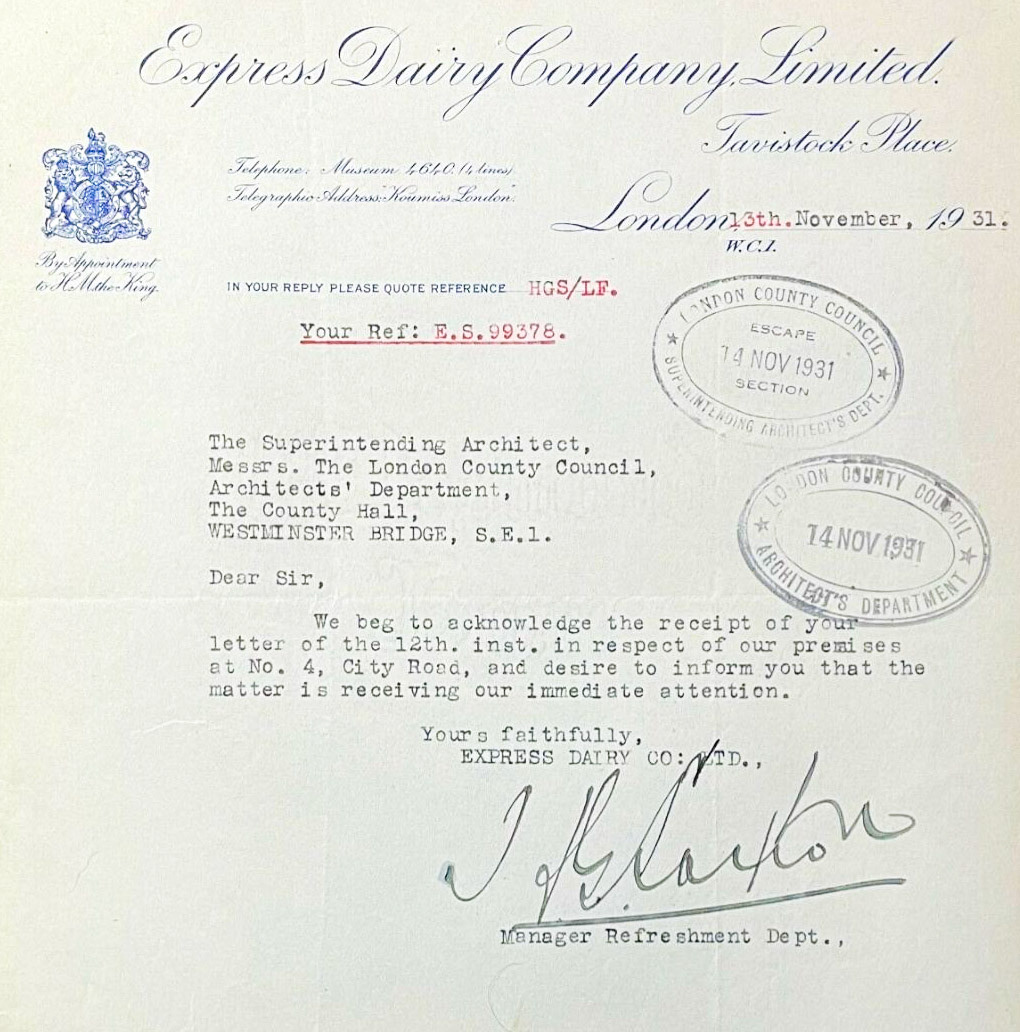 Express Dairy Company, Limited.
Tavistock Place.
Telephone: Museum 4640. (4 lines)
Telegraphic Address: "Koumiss London".
London 13th. November, 1931.
W.C.1.
By Appointment
to H.M. the King.
IN YOUR REPLY PLEASE QUOTE REFERENCE HGS/LF.
Your Ref: E.S.99378.
LONDON COUNTY COUNCIL
ESCAPE
14 NOV 1931
SECTION
SUPERINTENDING ARCHITECT'S DEPT.
The Superintending Architect,
Messrs. The London County Council,
Architects' Department,
The County Hall,
WESTMINSTER BRIDGE, S.E.1.
LONDON COUNTY COUNCIL
14 NOV 1931
ARCHITECT'S DEPARTMENT
Dear Sir,
We beg to acknowledge the receipt of your
letter of the 12th. inst. in respect of our premises
at No. 4, City Road, and desire to inform you that the
matter is receiving our immediate attention.
Yours faithfully,
EXPRESS DAIRY CO: LTD.,
Manager Refreshment Dept.,